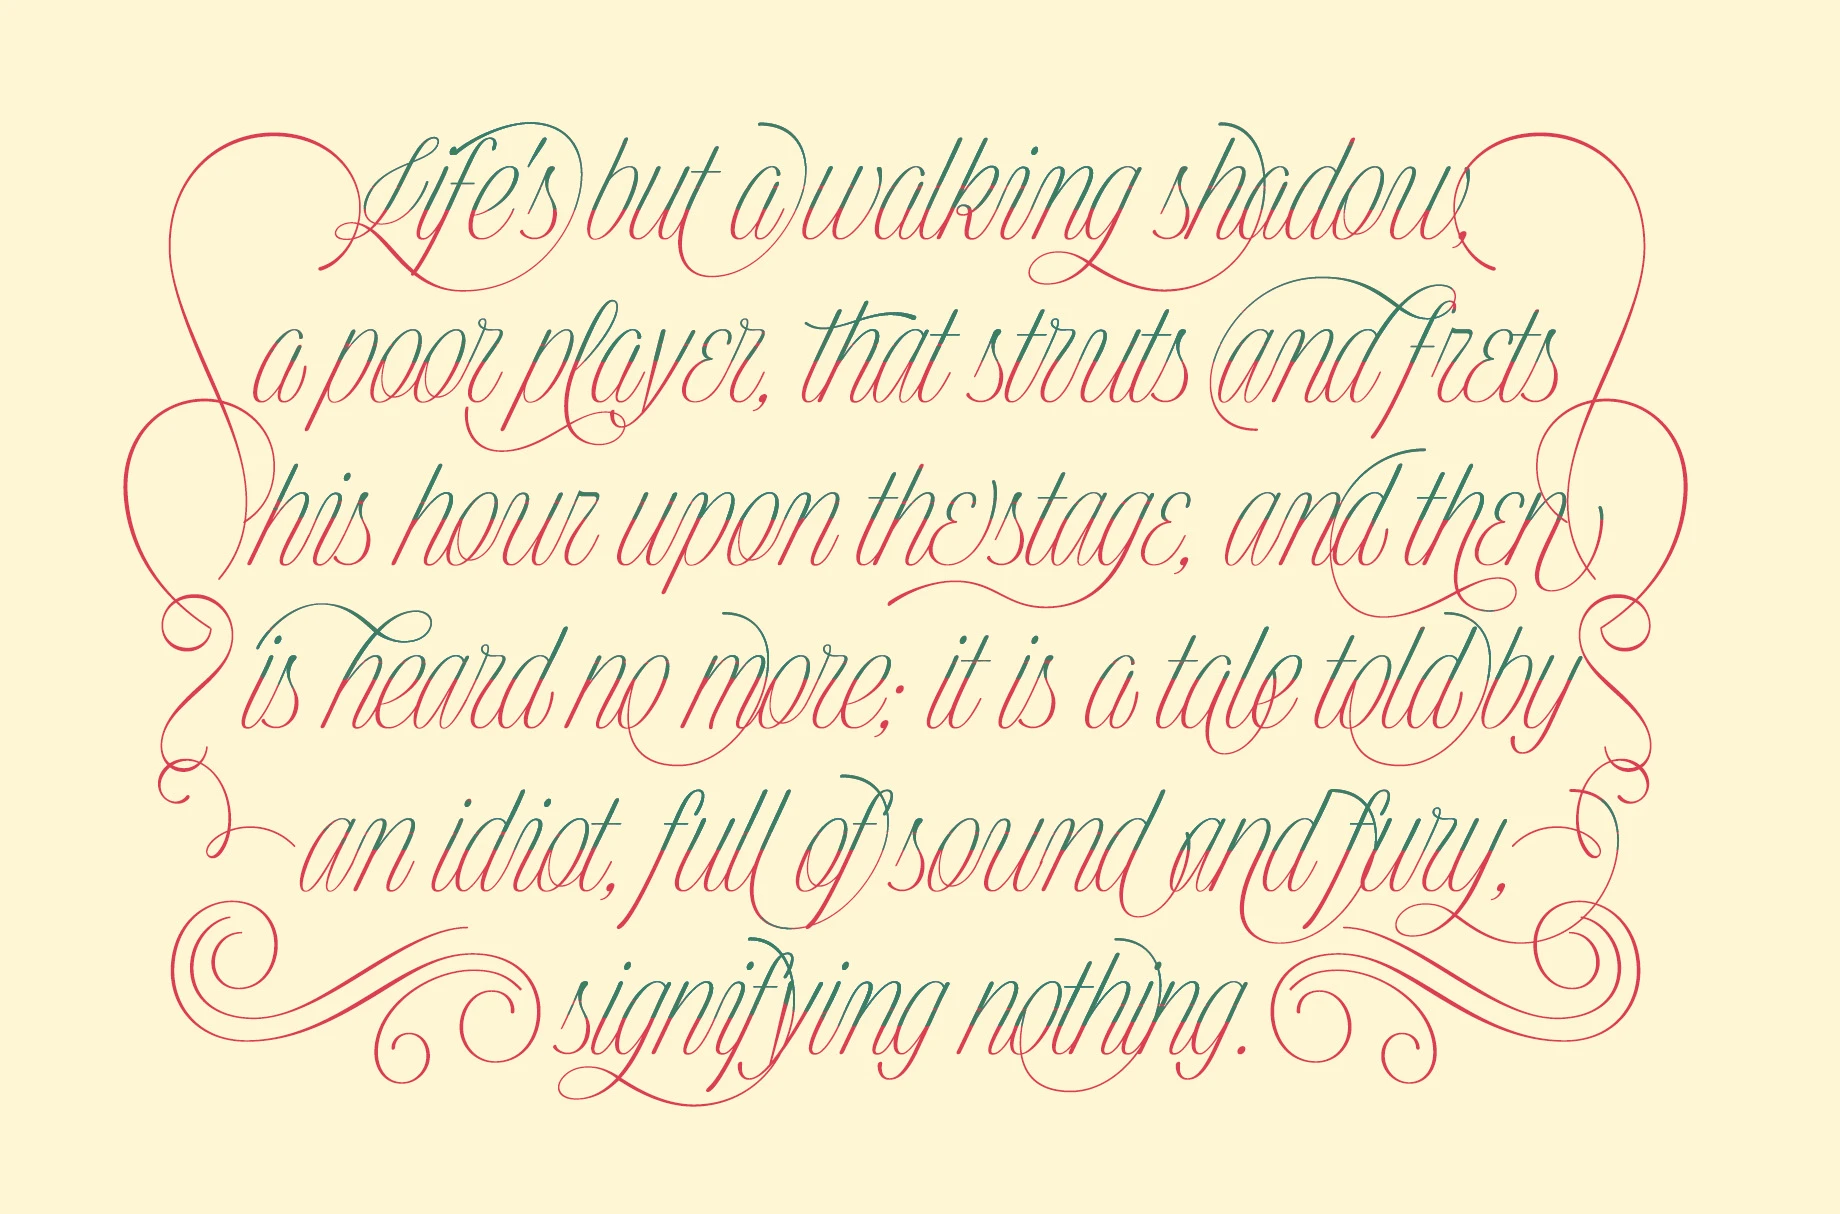 Life's but a walking shadow,
a poor player, that struts and frets
his hour upon the stage, and then
is heard no more; it is a tale told by
an idiot, full of sound and fury,
signifying nothing.